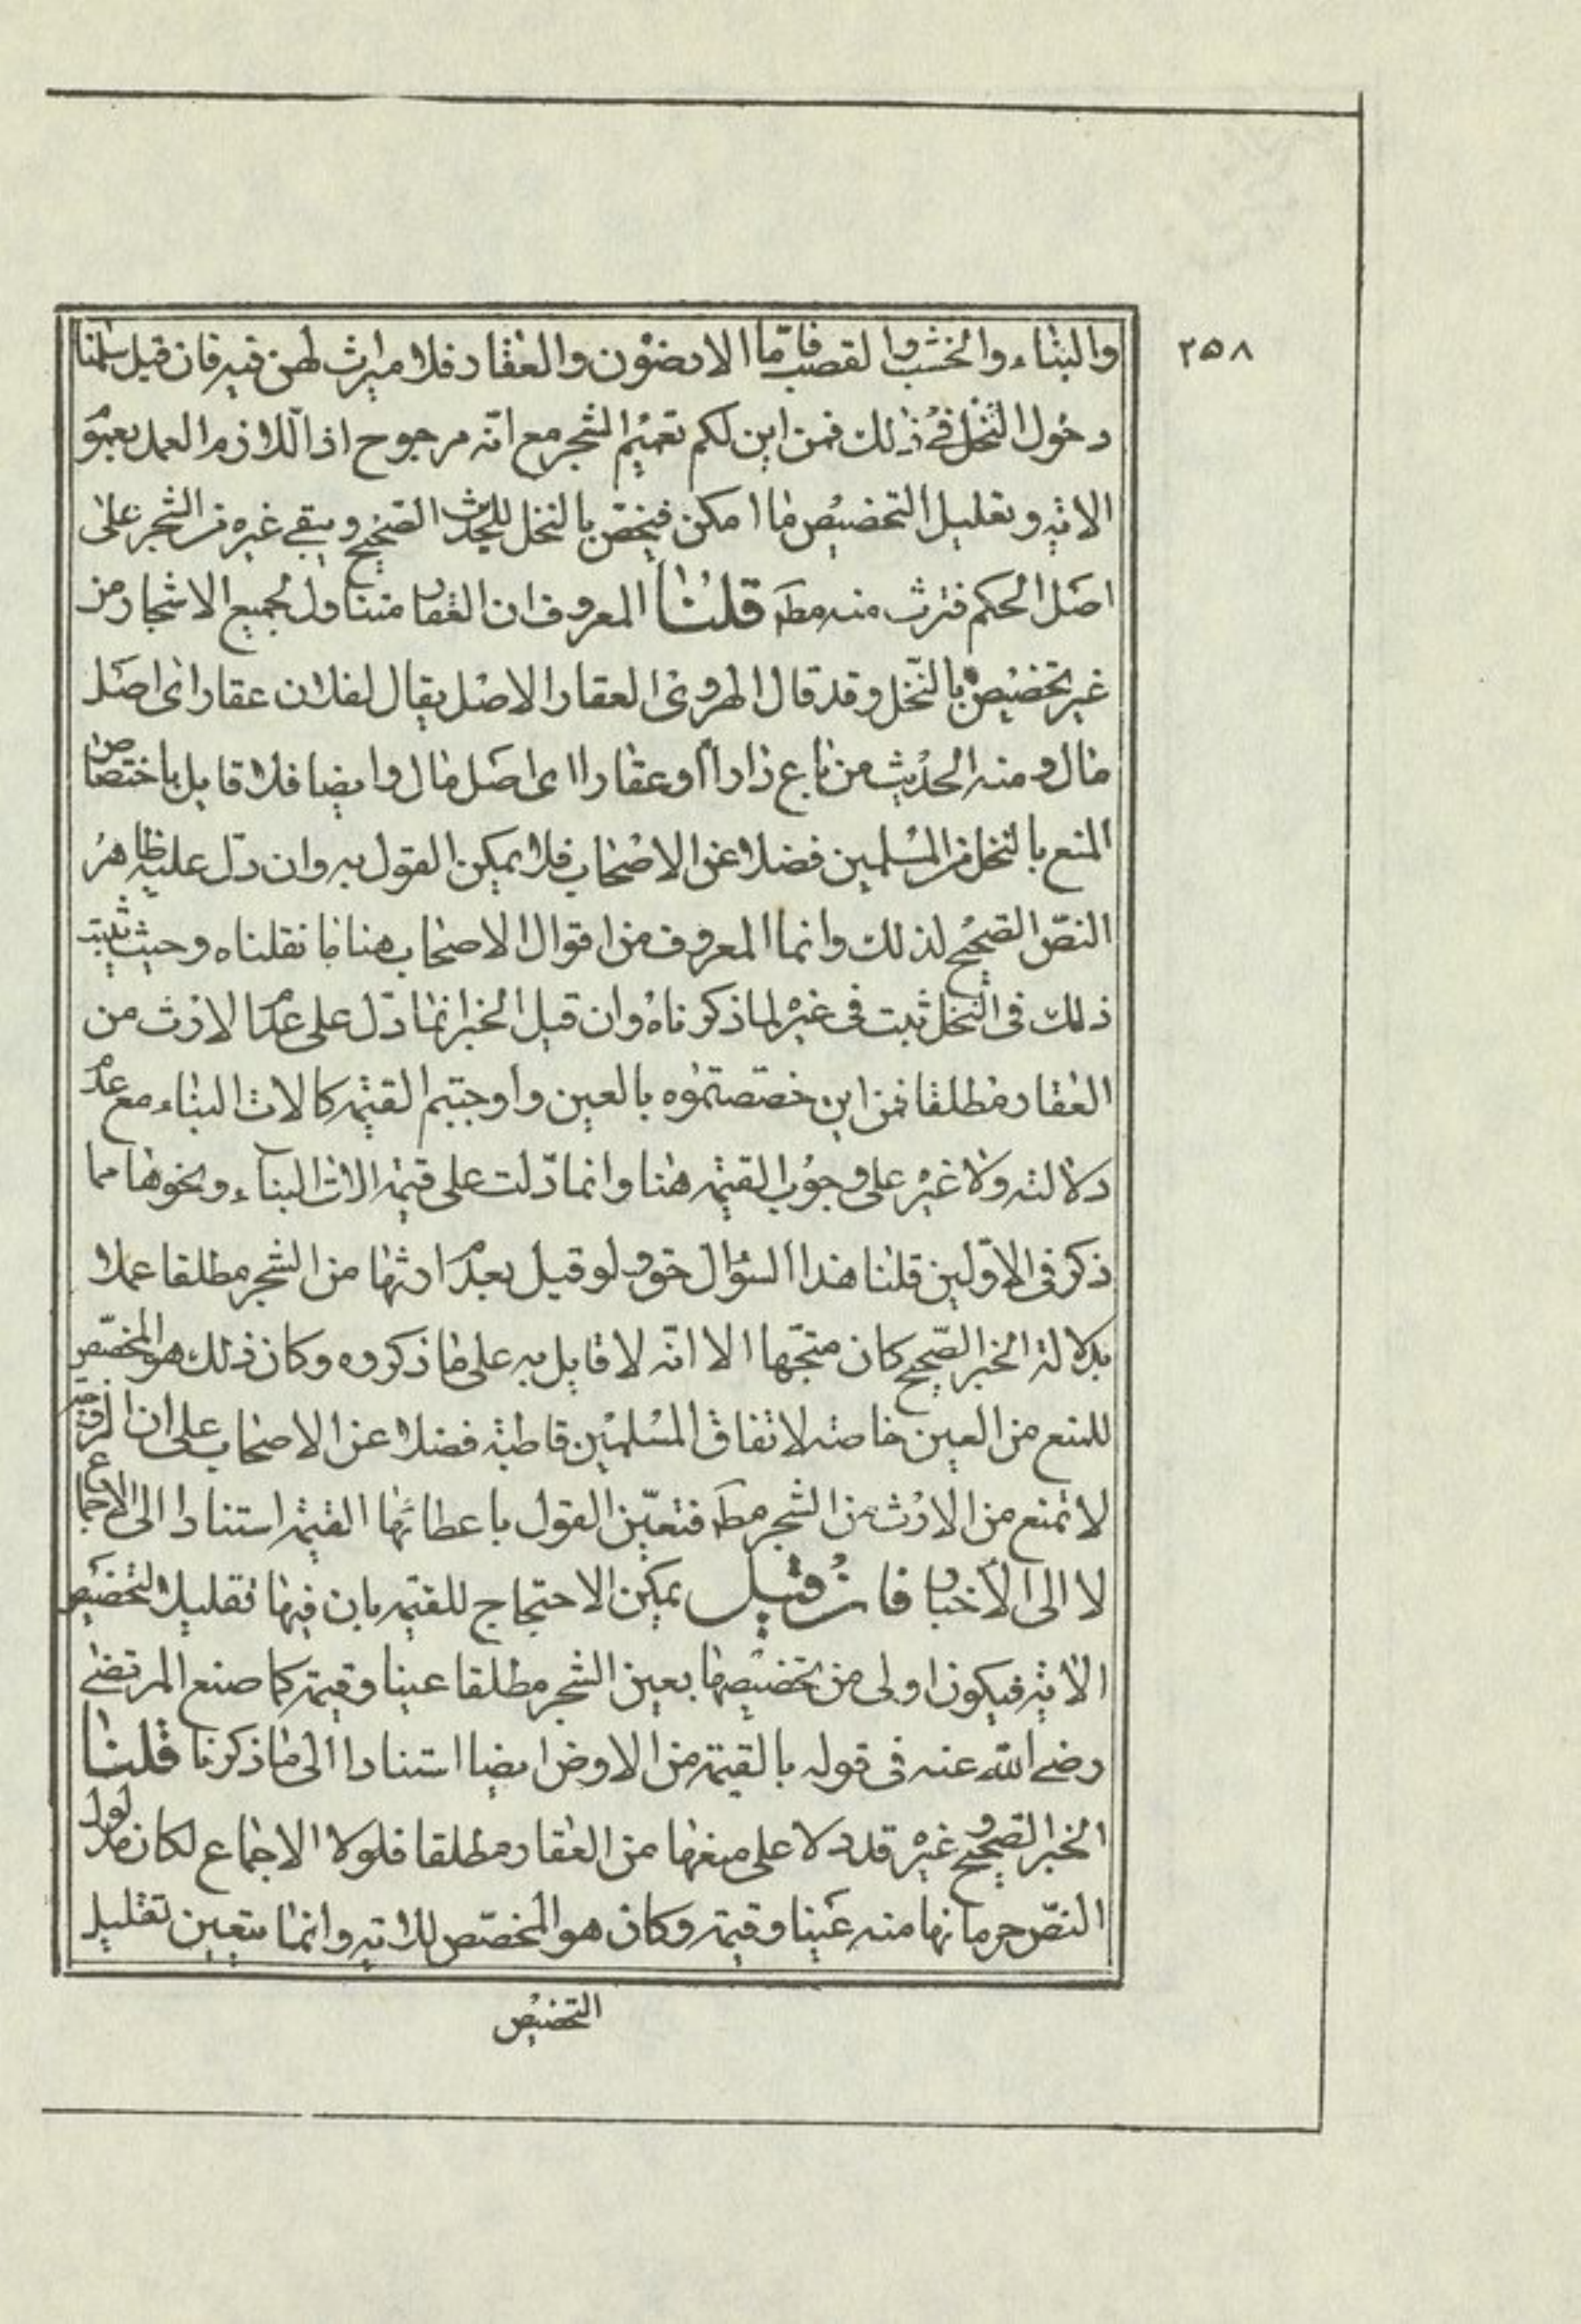 ٢٥٨
والبناء والخشب والقصب فامّا الارضون والعقار فلا ميراث لهن فيه فان قيل سلمنا
دخول النخل فى ذلك فمن اين لكم تعميم الشجر مع انّه مرجوح اذ اللازم العمل بعموم
الاية وتقليل التخصيص ما امكن فيختص بالنخل للحديث الصحيح ويبقى غيره من الشجر على
اصل الحكم فترث منه مط قلنا المعروف ان العقار متناول لجميع الاشجار من
غير تخصيص بالنّخل وقد قال الهروى العقار الاصل يقال لفلان عقار اى اصل
مال ومنه الحديث من باع دارا او عقارا اى اصل مال وايضا فلا قايل باختصاص
المنع بالنخل من المسلمين فضلا عن الاصحاب فلا يمكن القول به وان دلّ عليه ظاهر
النصّ الصحيح لذلك وانما المعروف من اقوال الاصحاب هنا ما نقلناه وحيث ثبت
ذلك فى النخل ثبت فى غيره لما ذكرناه وان قيل الخبر انما دلّ على عدم الارث من
العقار مطلقا فمن اين خصصتموه بالعين واوجبتم القيمة كالات البناء مع عدم
دلالته ولا غيره على وجوب القيمة هنا وانما دلّت على قيمة الات البناء ونحوها مما
ذكر فى الاوّلين قلنا هذا السؤال حق ولو قيل بعدم ارثها من الشجر مطلقا عملا
بدلالة الخبر الصّحيح كان متجّها الا انّه لا قايل به على ما ذكروه وكان ذلك هو المخصّص
للمنع من العين خاصة لاتفاق المسلمين قاطبة فضلا عن الاصحاب على ان الزوجة
لا تمنع من الارث من الشجر مط فتعيّن القول باعطائها القيمة استنادا الى الاجماع
لا الى الأخبار فان قيل يمكن الاحتجاج للقيمة بان فيها تقليل التخصيص
الاية فيكون اولى من تخصيصها بعين الشجر مطلقا عينا وقيمة كما صنع المرتضى
رضى الله عنه فى قوله بالقيمة من الارض ايضا استنادا الى ما ذكرنا قلنا
الخبر الصحيح وغيره قد دلا على منعها من العقار مطلقا فلولا الاجماع لكان مدلول
النصّ حرمانها منه عينا وقيمة وكان هو المخصّص للاية وانما يتعين تقليل
التخصيص